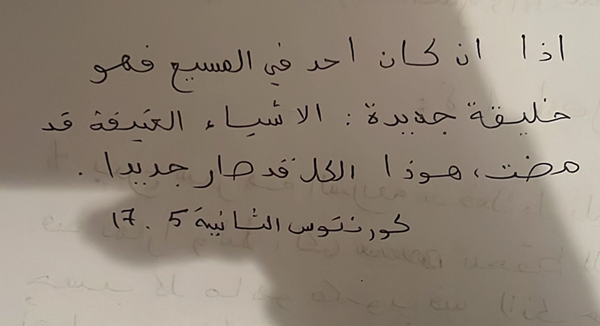 اذا ان كان احد في المسيح فهو
خليقة جديدة : الاشياء العتيقة قد
مضت، هوذا الكل قد صار جديدا .
كورنتوس الثانية 5 . 17